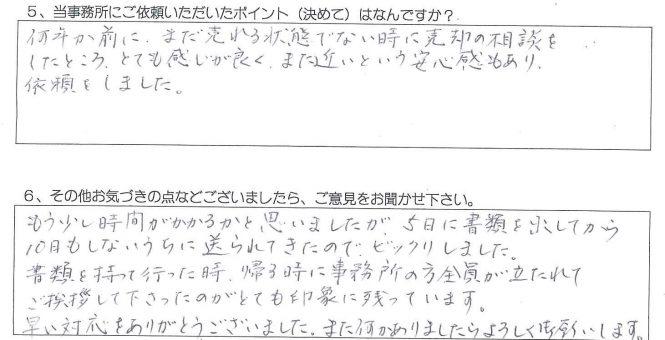 5、当事務所にご依頼いただいたポイント（決めて）はなんですか？
何年か前に、まだ売れる状態でない時に売却の相談を
したところ、とても感じが良く、また近いという安心感もあり、
依頼をしました。
6、その他お気づきの点などございましたら、ご意見をお聞かせ下さい。
もう少し時間がかかるかと思いましたが、5日に書類を出してから
10日もしないうちに送られてきたので、ビックリしました。
書類を持って行った時、帰る時に事務所の方全員が立たれて
ご挨拶して下さったのがとても印象に残っています。
早い対応をありがとうございました。また何かありましたらよろしく御願いします。